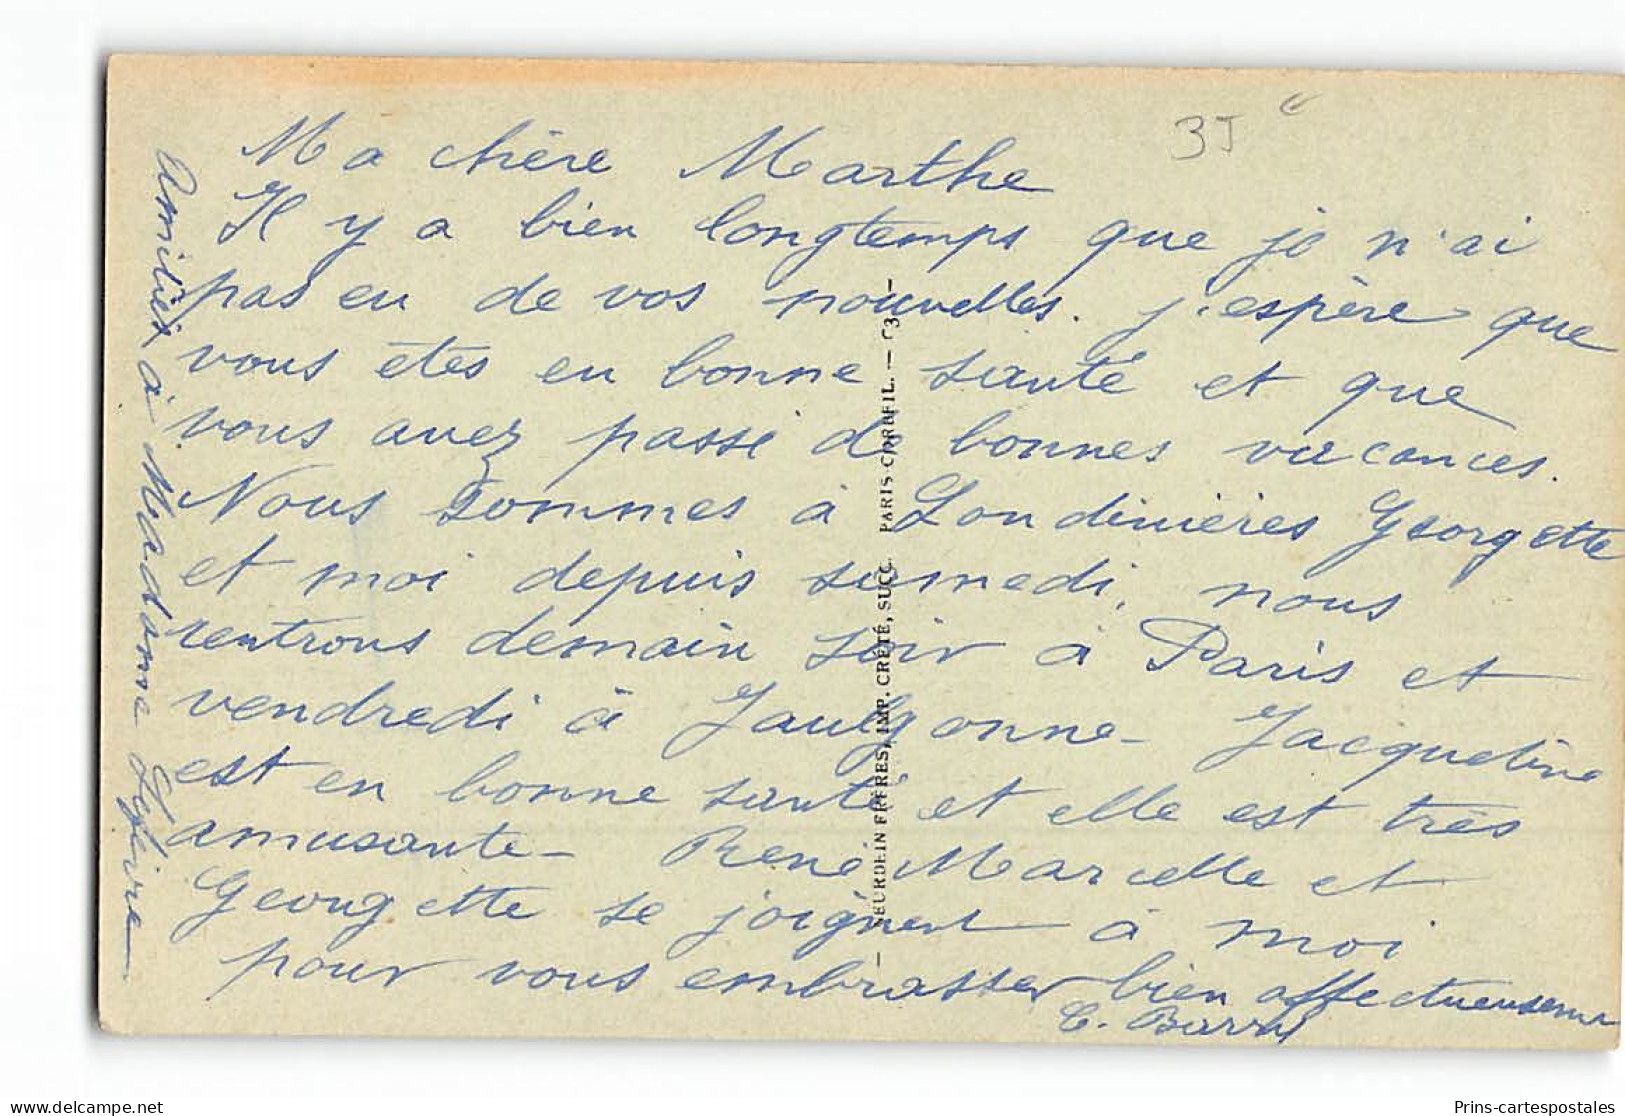 3J
Ma chère Marthe
Il y a bien longtemps que je n'ai
pas eu de vos nouvelles. j'espère que
vous êtes en bonne santé et que
vous avez passé de bonnes vacances.
Nous sommes à Londinières Georgette
et moi depuis samedi, nous
rentrons demain soir à Paris et
vendredi à Jaulgonne - Jacqueline
est en bonne santé et elle est très
amusante - René Marcelle et
Georgette se joignent à moi
pour vous embrasser bien affectueusement
C.
Amitiés à Madame
NEURDEIN FRÈRES, IMP. CRÉTÉ, SUCC. PARIS-CORBEIL. —
delcampe.net
Prins-cartespostales